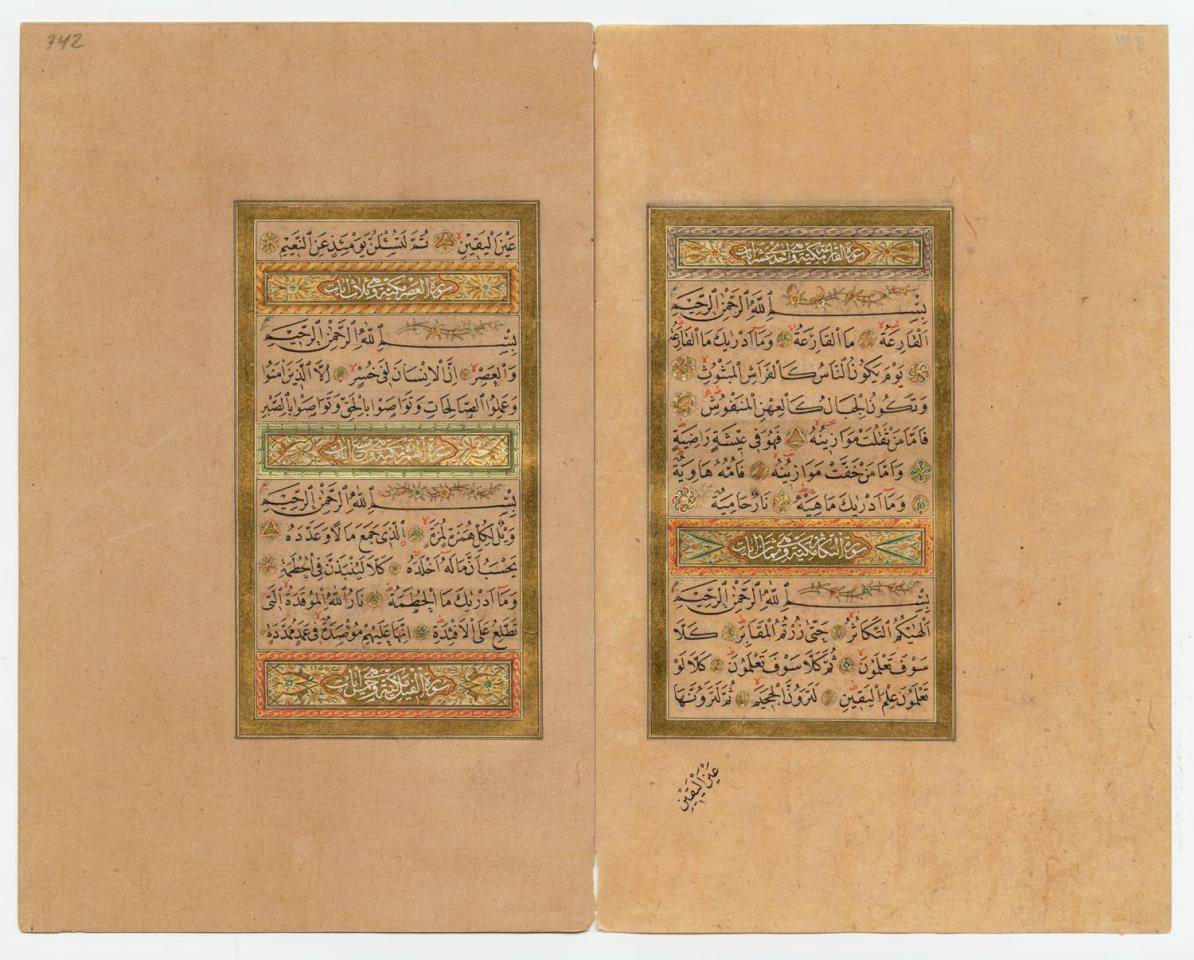 سورة القارعة مكية وهي احدى عشر ايات
بِسْمِ اللّٰهِ الرَّحْمٰنِ الرَّحِيمِ
اَلْقَارِعَةُ مَا الْقَارِعَةُ وَمَا اَدْرٰيكَ مَا الْقَارِعَةُ
يَوْمَ يَكُونُ النَّاسُ كَالْفَرَاشِ الْمَبْثُوثِ
وَتَكُونُ الْجِبَالُ كَالْعِهْنِ الْمَنْفُوشِ
فَاَمَّا مَنْ ثَقُلَتْ مَوَازِينُهُ فَهُوَ فِى عِيشَةٍ رَاضِيَةٍ
وَاَمَّا مَنْ خَفَّتْ مَوَازِينُهُ فَاُمُّهُ هَاوِيَةٌ
وَمَا اَدْرٰيكَ مَاهِيَهْ نَارٌ حَامِيَةٌ
سورة التكاثر مكية وهي ثمان ايات
بِسْمِ اللّٰهِ الرَّحْمٰنِ الرَّحِيمِ
اَلْهٰيكُمُ التَّكَاثُرُ حَتّٰى زُرْتُمُ الْمَقَابِرَ كَلَّا
سَوْفَ تَعْلَمُونَ ثُمَّ كَلَّا سَوْفَ تَعْلَمُونَ كَلَّا لَوْ
تَعْلَمُونَ عِلْمَ الْيَقِينِ لَتَرَوُنَّ الْجَحِيمَ ثُمَّ لَتَرَوُنَّهَا
عَيْنَ الْيَقِينِ
عَيْنَ الْيَقِينِ ثُمَّ لَتُسْئَلُنَّ يَوْمَئِذٍ عَنِ النَّعِيمِ
سورة العصر مكية وهي ثلاث ايات
بِسْمِ اللّٰهِ الرَّحْمٰنِ الرَّحِيمِ
وَالْعَصْرِ اِنَّ الْاِنْسَانَ لَفِى خُسْرٍ اِلَّا الَّذِينَ اٰمَنُوا
وَعَمِلُوا الصَّالِحَاتِ وَتَوَاصَوْا بِالْحَقِّ وَتَوَاصَوْا بِالصَّبْرِ
سورة الهمزة مكية وهي تسع ايات
بِسْمِ اللّٰهِ الرَّحْمٰنِ الرَّحِيمِ
وَيْلٌ لِكُلِّ هُمَزَةٍ لُمَزَةٍ اَلَّذِى جَمَعَ مَالًا وَعَدَّدَهُ
يَحْسَبُ اَنَّ مَالَهُ اَخْلَدَهُ كَلَّا لَيُنْبَذَنَّ فِى الْحُطَمَةِ
وَمَا اَدْرٰيكَ مَا الْحُطَمَةُ نَارُ اللّٰهِ الْمُوقَدَةُ الَّتِى
تَطَّلِعُ عَلَى الْاَفْئِدَةِ اِنَّهَا عَلَيْهِمْ مُؤْصَدَةٌ فِى عَمَدٍ مُمَدَّدَةٍ
سورة الفيل مكية وهي خمس ايات